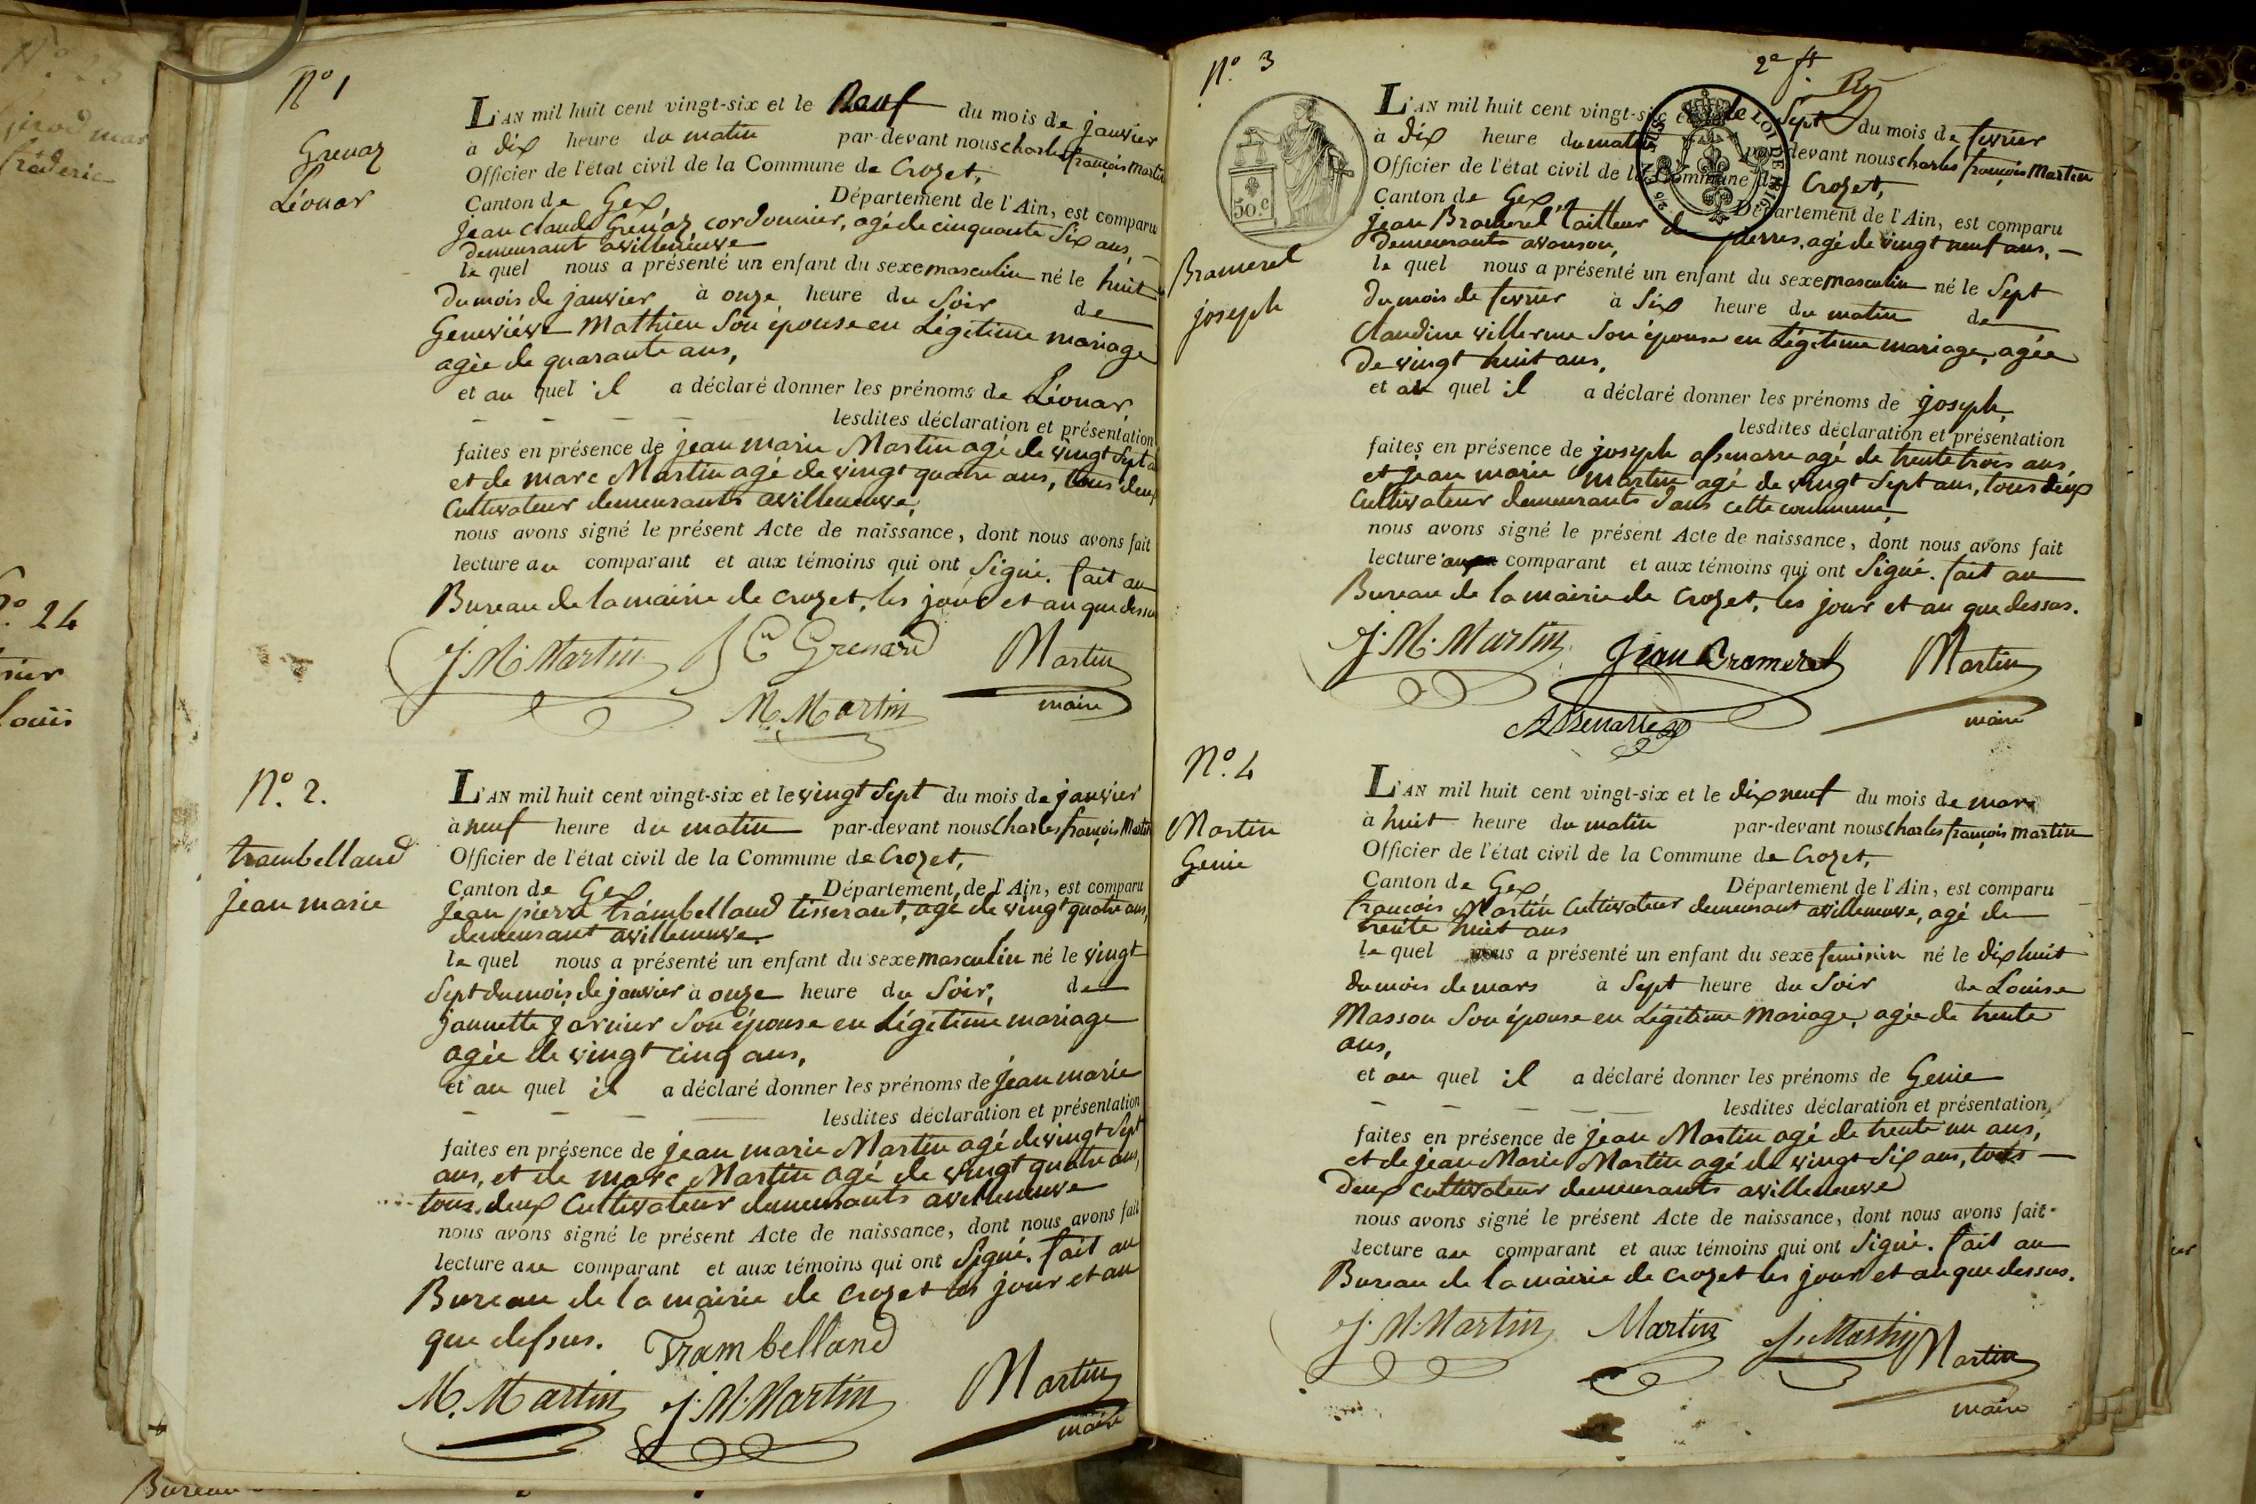 N.o 23
frederic
N.o 24
louis
N.o 1
Grenaz
Léonar
L'AN mil huit cent vingt-six et le Neuf du mois de janvier
à dix heure du matin par-devant nous charles françois Martin
Officier de l'état civil de la Commune de Crozet,
Canton de Gex, Département de l'Ain, est comparu
jean claude Grenaz, cordonnier, agé de cinquante six ans,
demeurant avilleneuve
le quel nous a présenté un enfant du sexe masculin né le huit
du mois de janvier à onze heure du Soir de
Geneviéve Mathieu Son épouse en Légitime mariage
agée de quarante ans,
et au quel il a déclaré donner les prénoms de Léonar,
lesdites déclaration et présentation
faites en présence de jean marie Martin agé de vingt Sept a
et de marc Martin agé de vingt quatre ans, tous deux
Cultivateur demeurants avilleneuve,
nous avons signé le présent Acte de naissance, dont nous avons fait
lecture au comparant et aux témoins qui ont Signé. fait au
Bureau de la mairie de crozet, les jour et an que dessu
J. M. Martin J C Grenard Martin
M. Martin maire
N.o 2.
trambelland
jean marie
L'AN mil huit cent vingt-six et le vingt Sept du mois de janvier
à neuf heure du matin par-devant nous Charles françois Martin
Officier de l'état civil de la Commune de Crozet,
Canton de Gex, Département de l'Ain, est comparu
jean pierre trambelland tisserant, agé de vingt quatre ans,
demeurant avilleneuve.
le quel nous a présenté un enfant du sexe masculin né le vingt
Sept du mois de janvier à onze heure du Soir, de
jannette jarnier Son épouse en Légitime mariage
agée de vingt cinq ans,
et au quel il a déclaré donner les prénoms de jean marie
lesdites déclaration et présentation
faites en présence de jean marie Martin agé de vingt Sept
ans, et de marc Martin agé de vingt quatre ans,
tous deux Cultivateur demeurants avilleneuve
nous avons signé le présent Acte de naissance, dont nous avons fait
lecture au comparant et aux témoins qui ont Signé. fait au
Bureau de la mairie de crozet les jour et an
que dessus. Trambelland
M. Martin J. M. Martin Martin
maire
Bureau
N.o 3
2e ft
50.c
Bramerel
joseph
L'AN mil huit cent vingt-six et le Sept du mois de fevrier
à dix heure du matin par-devant nous charles françois Martin
Officier de l'état civil de la Commune de Crozet,
Canton de Gex, Département de l'Ain, est comparu
jean Bramerel tailleur de pierres, agé de vingt neuf ans,
demeurants avouson,
le quel nous a présenté un enfant du sexe masculin né le Sept
du mois de fevrier à Six heure du matin de
Claudine villerme Son épouse en Légitime mariage, agée
de vingt huit ans,
et au quel il a déclaré donner les prénoms de joseph,
lesdites déclaration et présentation
faites en présence de joseph assenarre agé de trente trois ans,
et jean marie Martin agé de vingt Sept ans, tous deux
Cultivateur demeurants dans cette commune,
nous avons signé le présent Acte de naissance, dont nous avons fait
lecture au comparant et aux témoins qui ont Signé. fait au
Bureau de la mairie de Crozet, les jour et an que dessus.
J. M. Martin Jean Bramerel Martin
Assenarre maire
N.o 4
Martin
Genie
L'AN mil huit cent vingt-six et le dix neuf du mois de mars
à huit heure du matin par-devant nous charles françois Martin
Officier de l'état civil de la Commune de Crozet,
Canton de Gex, Département de l'Ain, est comparu
françois Martin Cultivateur demeurant avilleneuve, agé de
trente huit ans
le quel nous a présenté un enfant du sexe feminin né le dix huit
du mois de mars à Sept heure du Soir de Louise
Masson Son épouse en Légitime Mariage, agée de trente
ans,
et au quel il a déclaré donner les prénoms de Genie
lesdites déclaration et présentation
faites en présence de jean Martin agé de trente un ans,
et de jean Marie Martin agé de vingt Six ans, tous
deux cultivateur demeurants avilleneuve
nous avons signé le présent Acte de naissance, dont nous avons fait
lecture au comparant et aux témoins qui ont Signé. fait au
Bureau de la mairie de crozet les jour et an que dessus.
J. M. Martin Martin J. Martin Martin
maire